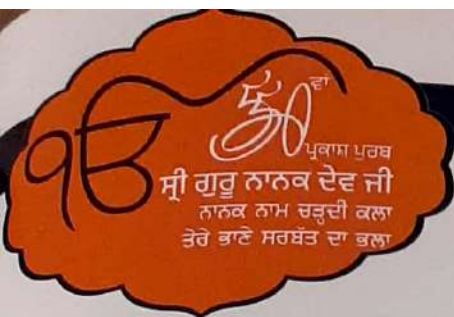 ੴ
ਵਾਂ
ਪ੍ਰਕਾਸ਼ ਪੁਰਬ
ਸ੍ਰੀ ਗੁਰੂ ਨਾਨਕ ਦੇਵ ਜੀ
ਨਾਨਕ ਨਾਮ ਚੜ੍ਹਦੀ ਕਲਾ
ਤੇਰੇ ਭਾਣੇ ਸਰਬੱਤ ਦਾ ਭਲਾ